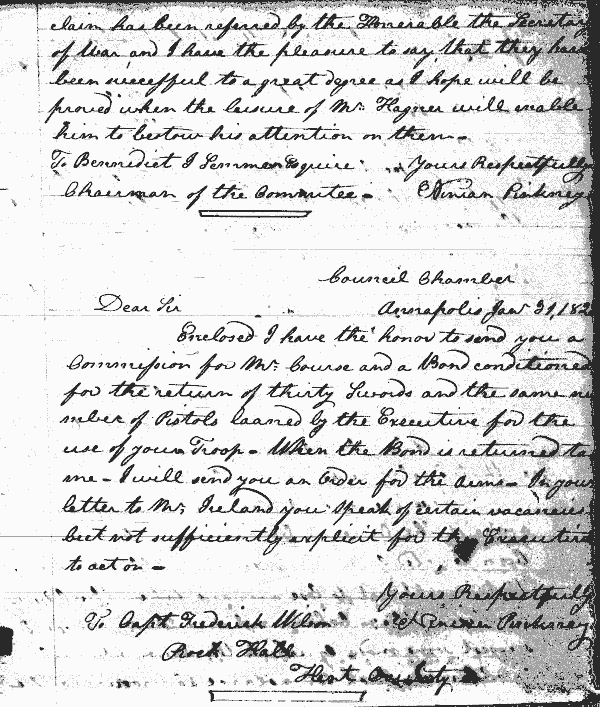 claim has been referred by the Honorable the Secretary
of War and I have the pleasure to say that they have
been succefsful to a great degree as I hope will be
proved when the leisure of Mr. Hagner will enable
him to bestow his attention on them -
To Bennedict I Semmes Esquire Yours Respectfully
Chairman of the Committee - Ninian Pinkney
Council Chamber
Dear Sir Annapolis Jany 31, 182
Enclosed I have the honor to send you a
Commission for Mr. Course and a Bond conditioned
for the return of thirty Swords and the same nu
mber of Pistols loaned by the Executive for the
use of your Troop - When the Bond is returned to
me - I will send you an Order for the arms - In your
letter to Mr. Ireland you speak of certain vacancies
but not sufficiently explicit for the Executive
to act on -
Yours Respectfully
To Capt Frederick Wilson Ninian Pinkney
Rock Hall
Kent County